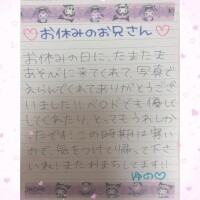 お休みのお兄さん
お休みの日に、たまたま
あそびに来てくれて、写真で
えらんでくれてありがとうござ
いました!! ベ○ドでも優しく
してくれたり、とってもうれしか
ったです!! この時期は寒い
ので、気をつけて帰って下さ
いね!またおまちしてます!!
ゆの